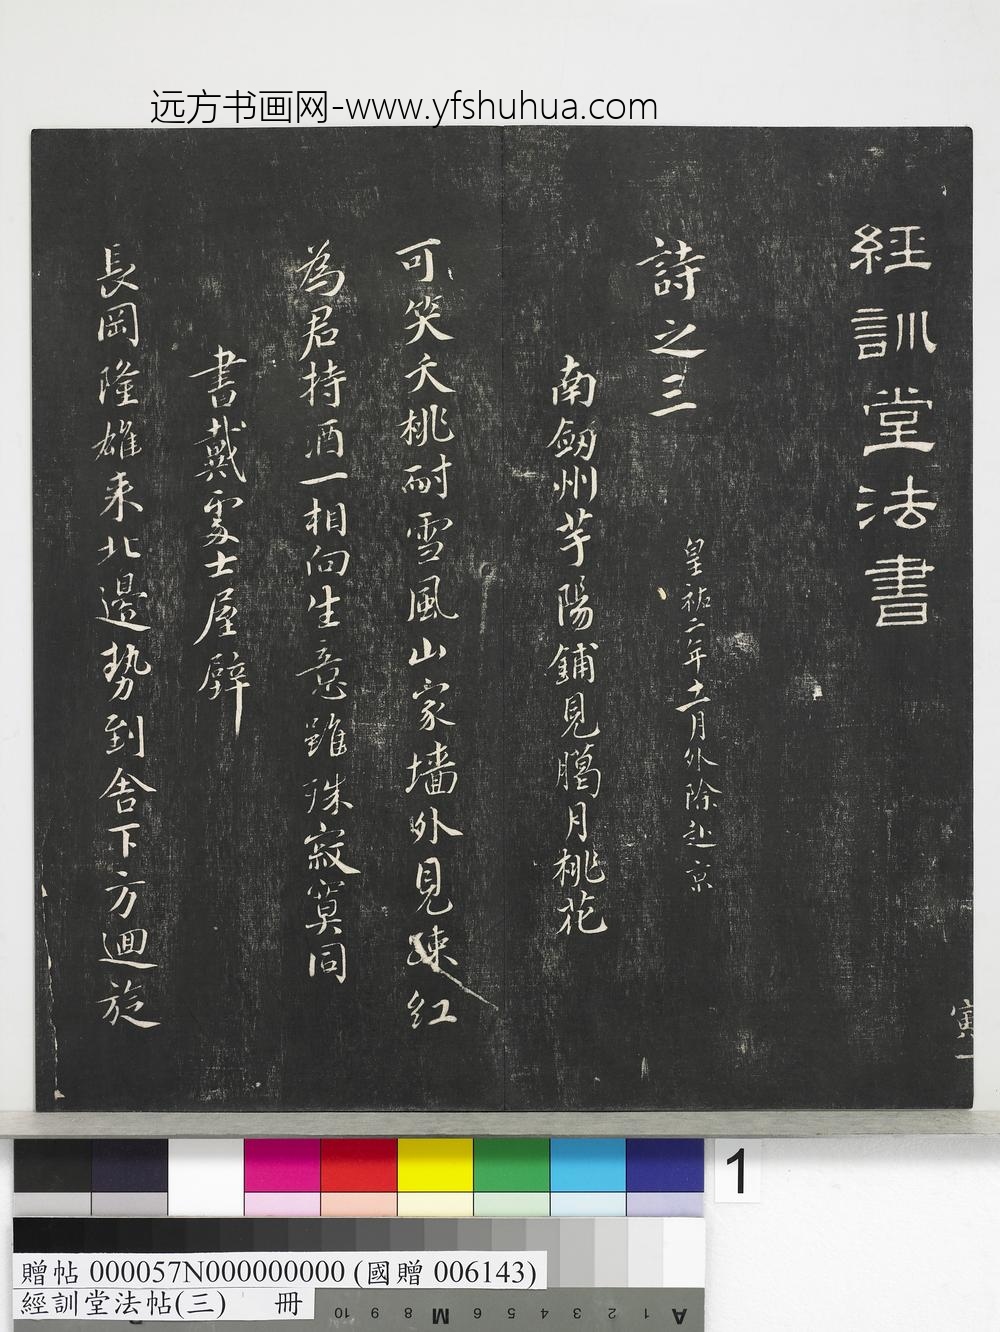 远方书画网-www.yfshuhua.com
經訓堂法書
寅一
詩之三
皇祐二年十一月外除赴京
南劒州芋陽鋪見臈月桃花
可笑夭桃耐雪風山家墻外見疎紅
為君持酒一相向生意雖殊寂寞同
書戴處士屋壁
長岡隆雄来北邊勢到舎下方迴旋
1
贈帖 000057N000000000 (國贈 006143)
經訓堂法帖(三) 冊
10 9 8 M 6 5 4 3 2 1 A